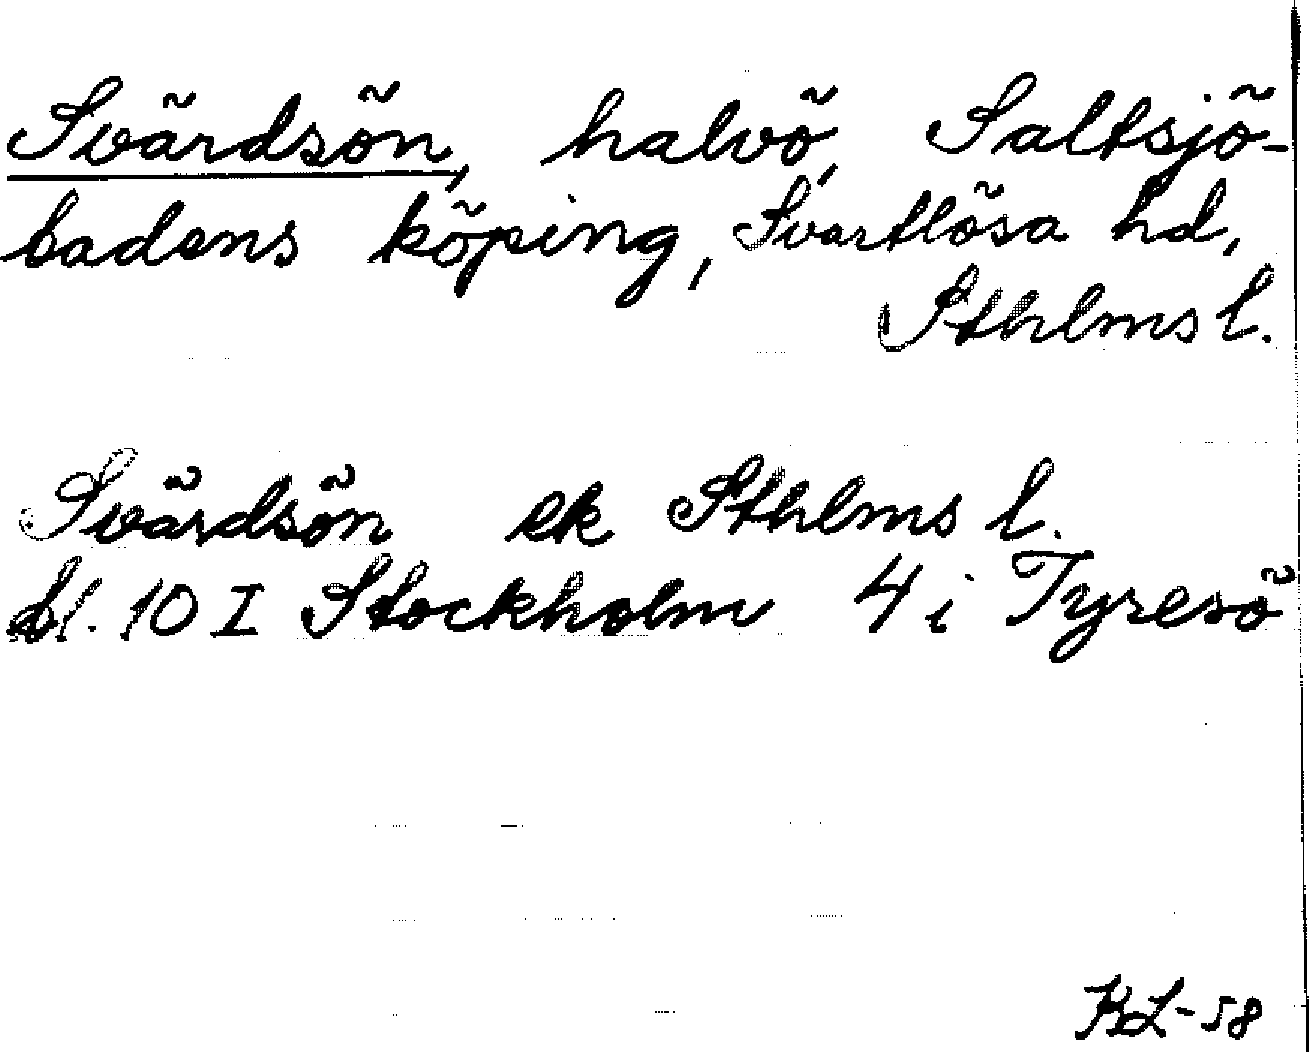 Svärdsön, halvö, Saltsjö-
badens köping, Svartlösa hd,
Sthlms l.
Svärdsön ek Sthlms l.
bl. 10 I Stockholm 4 i Tyresö
KL-58